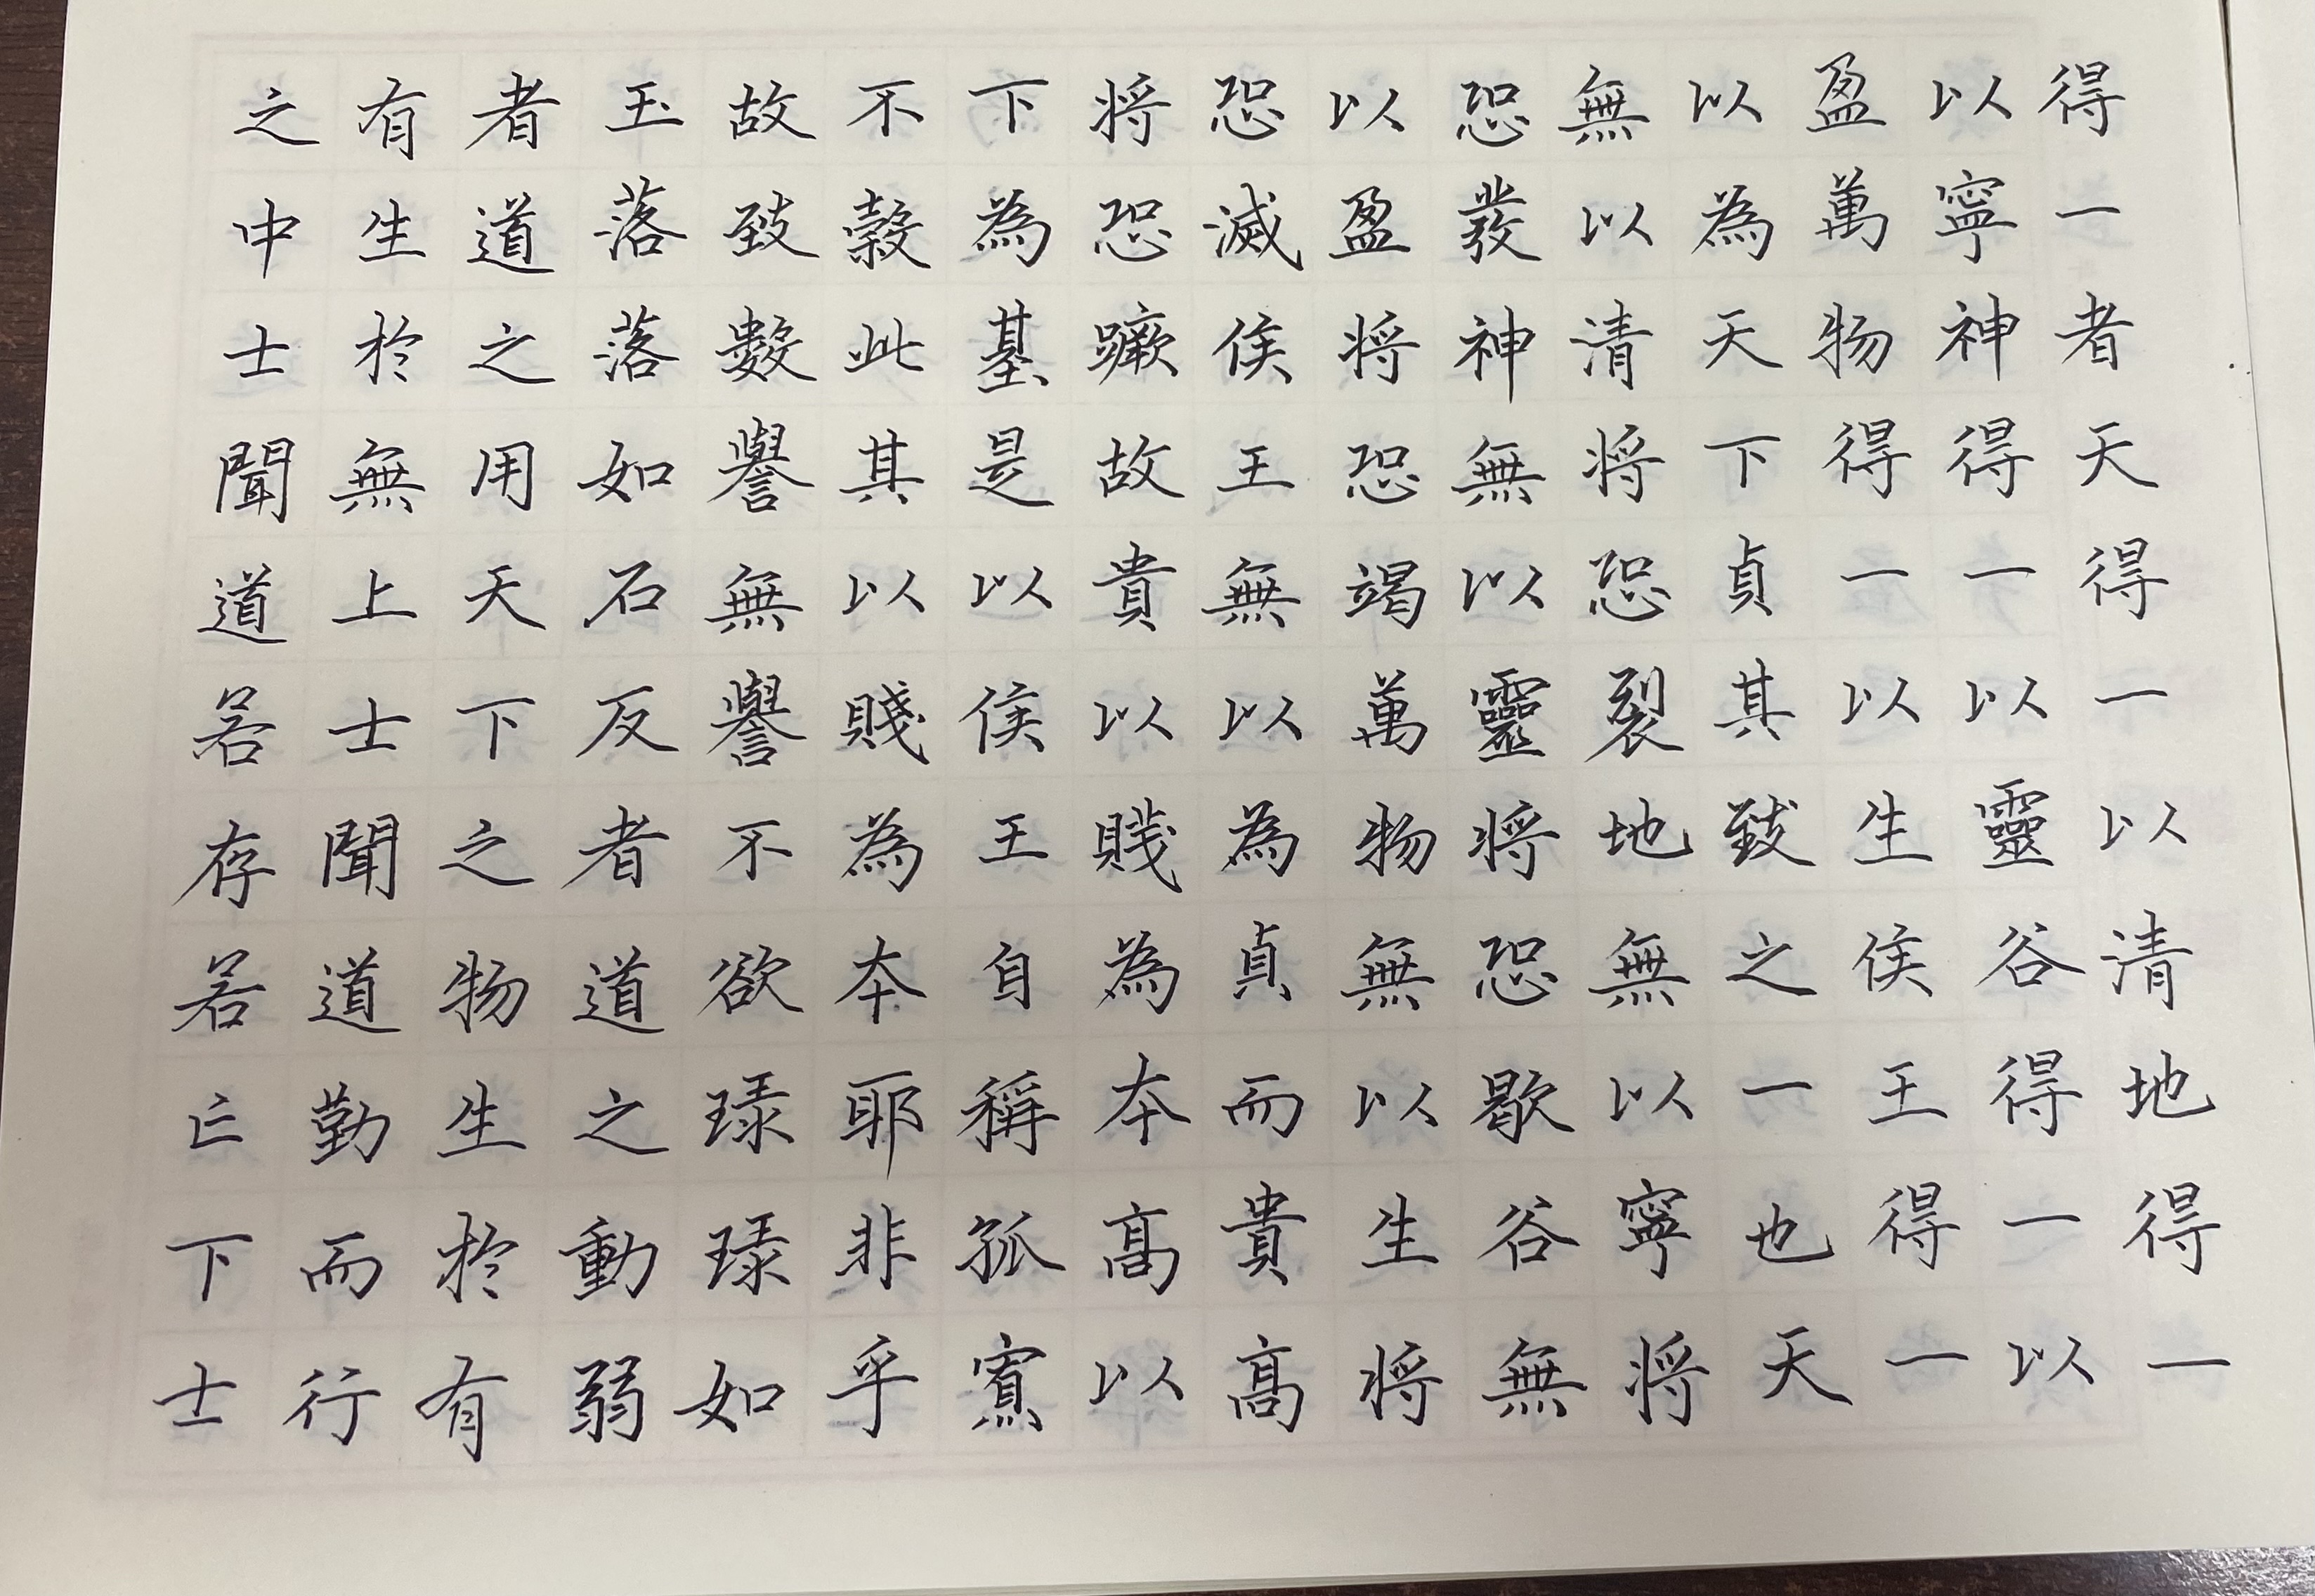 得一者天得一以清地得一
以寧神得一以靈谷得一以
盈萬物得一以生侯王得一
以為天下貞其致之一也天
無以清將恐裂地無以寧將
恐發神無以靈將恐歇谷無
以盈將恐竭萬物無以生將
恐滅侯王無以為貞而貴高
將恐蹶故貴以賤為本高以
下為基是以侯王自稱孤寡
不穀此其以賤為本耶非乎
故致數譽無譽不欲琭琭如
玉落落如石反者道之動弱
者道之用天下之物生於有
有生於無上士聞道勤而行
之中士聞道若存若亡下士